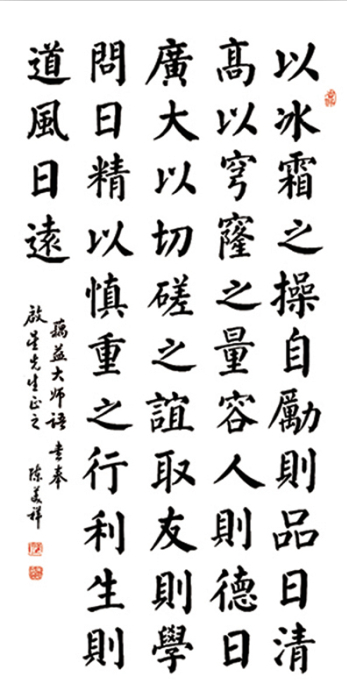 以冰霜之操自勵則品日清
高以穹窿之量容人則德日
廣大以切磋之誼取友則學
問日精以慎重之行利生則
道風日遠
蕅益大师语 書奉
啟星先生正之 陈美祥